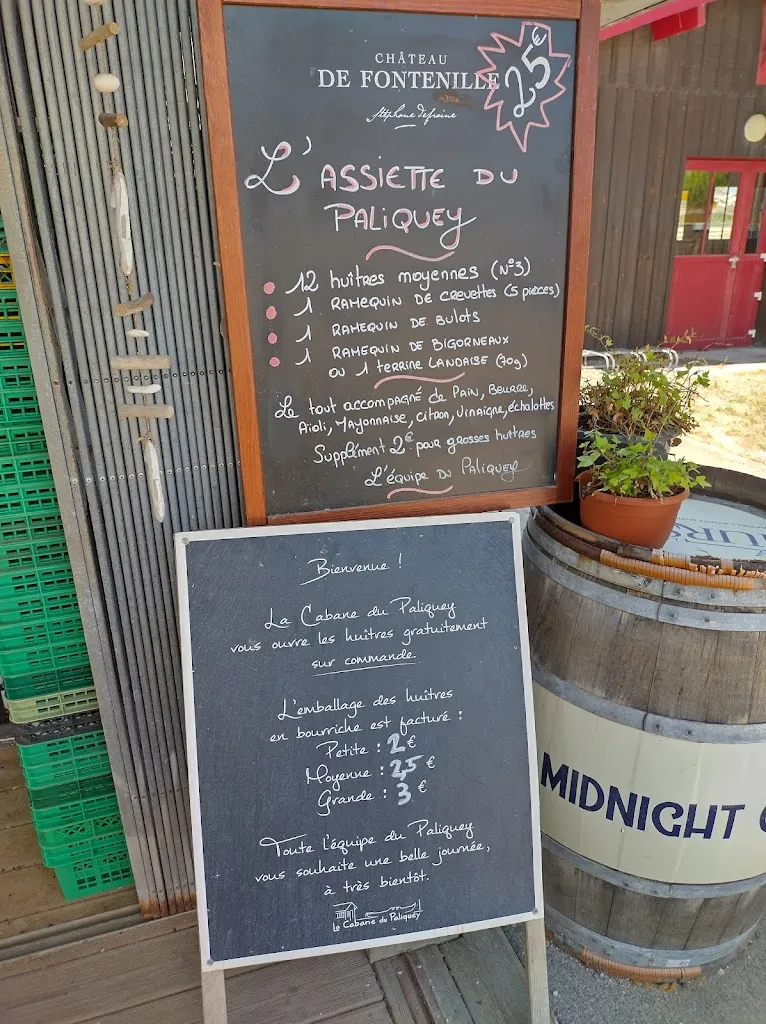 CHÂTEAU
DE FONTENILLE
Stéphane Defraine
25€
L'ASSIETTE DU
PALIQUEY
12 huîtres moyennes (N°3)
1 RAMEQUIN DE CREVETTES (5 pièces)
1 RAMEQUIN DE BULOTS
1 RAMEQUIN DE BIGORNEAUX
ou 1 terrine LANDAISE (70g)
Le tout accompagné de PAIN, BEURRE,
Aïoli, MAYONNAISE, Citron, Vinaigre, échalottes
Supplément 2€ pour grosses huîtres
L'équipe DU PALIQUEY
Bienvenue !
La Cabane du Paliquey
vous ouvre les huîtres gratuitement
sur commande.
L'emballage des huîtres
en bourriche est facturé :
Petite : 2 €
Moyenne : 2,5 €
Grande : 3 €
Toute l'équipe du Paliquey
vous souhaite une belle journée,
à très bientôt.
La Cabane du Paliquey
MIDNIGHT